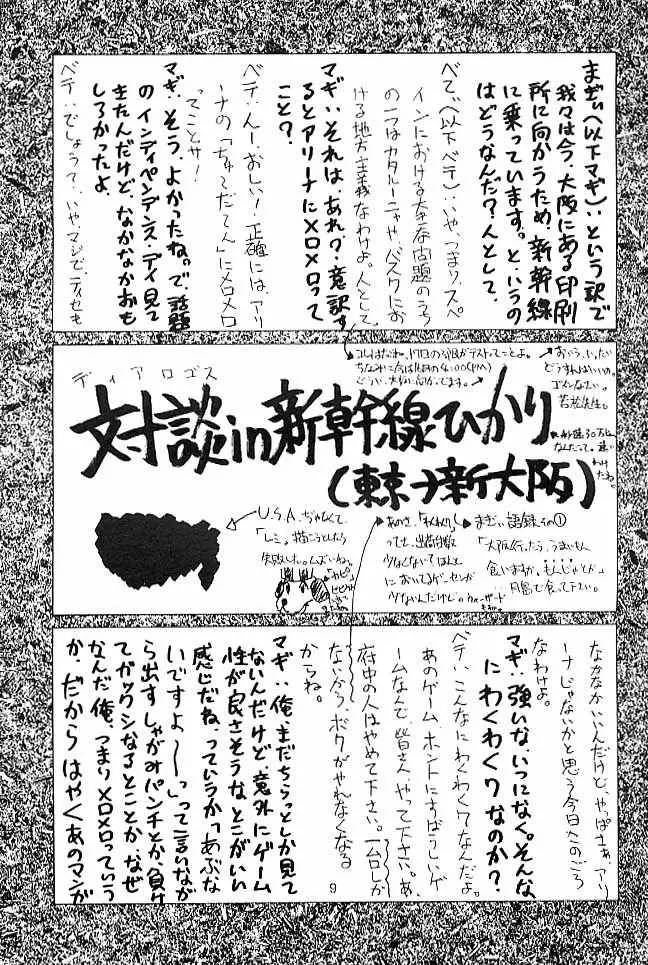 まぎぃ(以下マギ):という訳で
我々は今、大阪にある印刷
所に向かうため、新幹線
に乗っています。と、いうの
はどうなんだ?人として。
べてぃ(以下ベテ):いや、つまり、スペ
インにおける大きな問題のうち
の一つはカタルーニャや、バスクにお
ける地方主義なわけよ。人として
マギ:それは、あれか?意訳す
るとアリーナにメロメロって
こと?
ベテ:んー、おしい!正確には、アリ
ーナの「ちゅてだてん」にメロメロ
ってことサ!
マギ:そう、よかったね。で、話題
のインディペンデンス・デイ見て
きたんだけど、なかなかおも
しろかったよ。
ベテ:でしょうて、いやマジで、ディセも
ディアロゴス
対談in新幹線ひかり
(東京→新大阪)
おいう、いたい
どうすんばいいの。
ゴメンなさい。
若松先生。
U.S.A.ぢゃなくて、
「レミ」描こうとしたら
失敗した。ムズいね。
あのさ、「わくわく7」
ってさ、出荷台数
少なくないで
においてるゲーセンが
少ないんだけど。
まぎぃ語録その①
「大阪行ったら、うまいもん
食いますか。もんじゃとか」
月島で食って下さい。
なかなかいいんだけど、やっぱさぁ、アリ
ーナじゃないかと思う今日このごろ
なわけよ。
マギ:強いな、いつになく。そんな
にわくわく7なのか?
ベテ:こんなにわくわく7なんだよ。
あのゲームホントにすばらしいゲ
ームなんで、皆さん、やって下さい。あ、
府中の人はやめて下さい。一台しか
ないから、ボクがやれなくなる
からね。
マギ:俺、まだちらっとしか見て
ないんだけど、意外にゲーム
性が良さそうな、とこがいい
感じだね、っていうか「あぶな
いですよ〜〜」って言いなが
ら出すしゃがみパンチとか、負け
てガックシなるとことか、なぜ
なんだ俺、つまりメロメロっていう
か、だからはやくあのマンガ
9